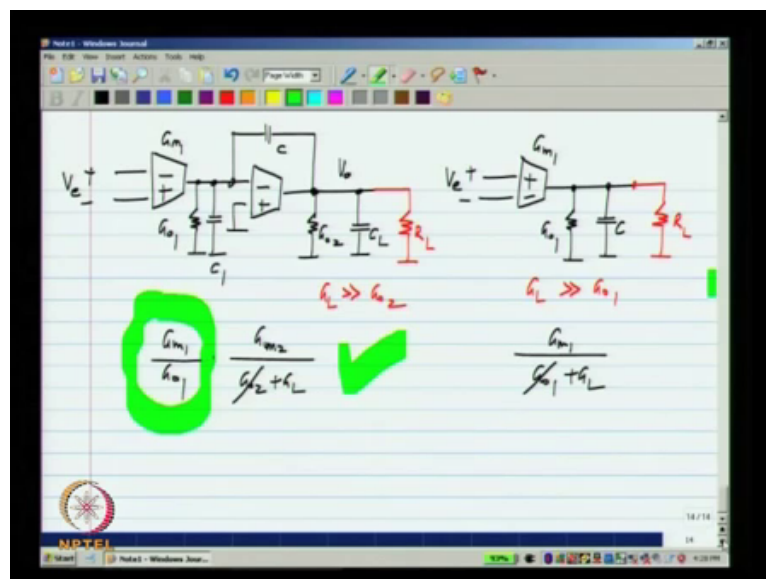 Note1 - Windows Journal
File Edit View Insert Actions Tools Help
Page Width
B I
Gm
C
Ve + -
- +
- +
Vo
Go1
C1
Go2
CL
RL
GL >> Go2
Gm1
Ve + -
+ -
Go1
C
RL
GL >> Go1
Gm1 / Go1 · Gm2 / Go2 + GL
Gm1 / Go1 + GL
14 / 14
14
NPTEL
Start
Note1 - Windows Jour...
93%
4:28 PM